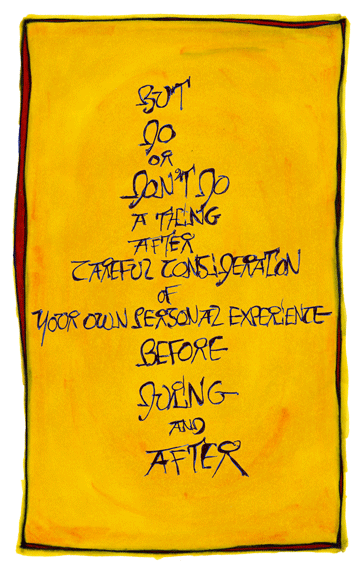 BUT
DO
OR
DON'T DO
A THING
AFTER
CAREFUL CONSIDERATION
OF
YOUR OWN PERSONAL EXPERIENCE
BEFORE
DOING
AND
AFTER